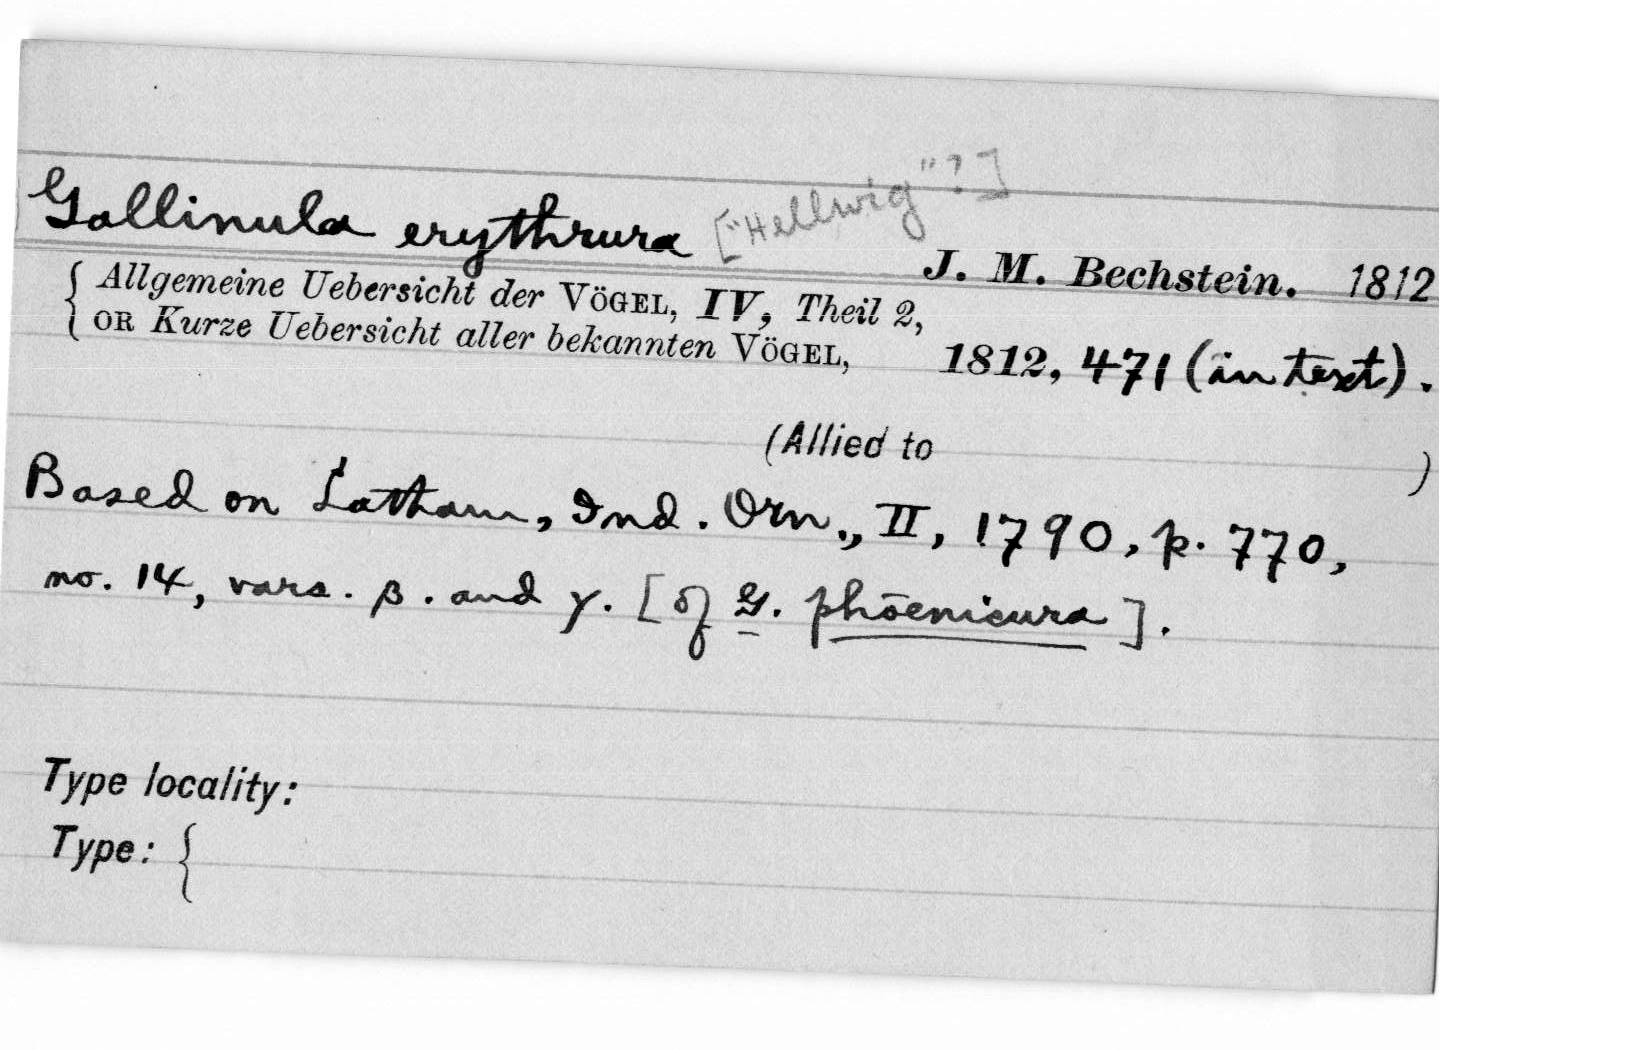 Gallinula erythrura ["Hellwig"?]
J. M. Bechstein. 1812
{ Allgemeine Uebersicht der VÖGEL, IV, Theil 2,
OR Kurze Uebersicht aller bekannten VÖGEL, 1812, 471 (in text).
(Allied to )
Based on Latham, Ind. Orn., II, 1790, p. 770,
no. 14, vars. β. and γ. [of G. phoenicura].
Type locality:
Type: {